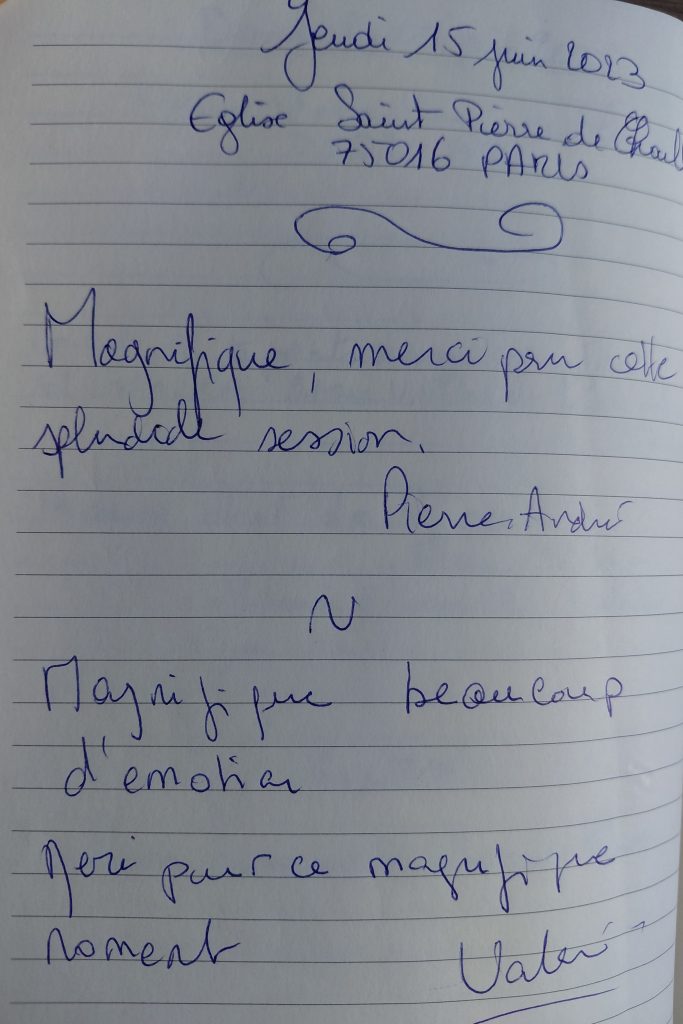 Jeudi 15 juin 2023
Eglise Saint Pierre de Chail
75016 PARIS
Magnifique, merci pour cette
splendide session.
Pierre-André
Magnifique beaucoup
d'emotion
Merci pour ce magnifique
moment
Valérie